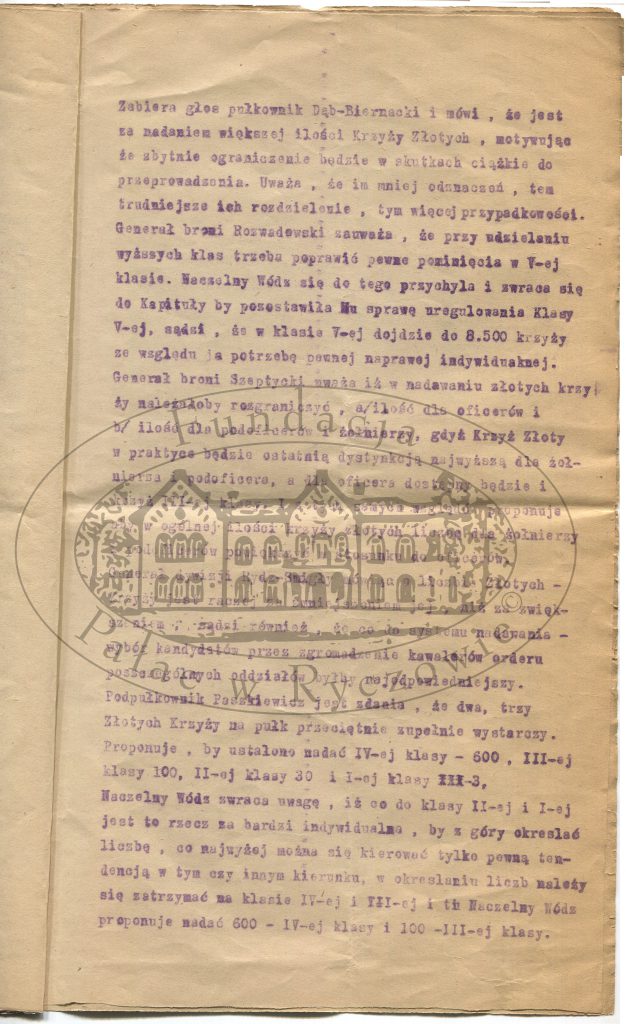 Zabiera głos pułkownik Dąb-Biernacki i mówi , że jest
za nadaniem większej ilości Krzyży Złotych , motywując
że zbytnie ograniczenie będzie w skutkach ciążkie do
przeprowadzenia. Uważa , że im mniej odznaczeń , tem
trudniejsze ich rozdzielenie , tym więcej przypadkowości.
Generał broni Rozwadowski zauważa , że przy udzielaniu
wyższych klas trzeba poprawić pewne pominięcia w V-ej
klasie. Naczelny Wódz się do tego przychyla i zwraca się
do Kapituły by pozostawiła Mu sprawę uregulowania Klasy
V-ej, sądzi , że w klasie V-ej dojdzie do 8.500 krzyży
ze względu ja potrzebę pewnej naprawej indywiduaknej.
Generał broni Szeptycki uważa iż w nadawaniu złotych krzy
ży należałoby rozgraniczyć , a/ilość dla oficerów i
b/ ilość dla podoficerów i żołnierzy, gdyż Krzyż Złoty
w praktyce będzie ostatnią dystynkcją najwyższą dla żoł-
nierza i podoficera, a dla oficera dostępny będzie i
krzyż III-ej klasy. proponuje
w ogólnej ilości krzyży złotych liczbę dla żołnierzy
stosunku do oficerów,
Generał dywizji Rydz-Śmigły Złotych -
Krzyży jest raczej za zmniejszeniem jej , niż za zwięk-
szeniem , sądzi również , że co do systemu nadawania -
wybór kandydatów przez zgromadzenie kawalerów orderu
poszczególnych oddziałów byłby najodpowiedniejszy.
Podpułkownik Paszkiewicz jest zdania , że dwa, trzy
Złotych Krzyży na pułk przeciętnie zupełnie wystarczy.
Proponuje , by ustalono nadać IV-ej klasy - 600 , III-ej
klasy 100, II-ej klasy 30 i I-ej klasy XXX-3,
Naczelny Wódz zwraca uwagę , iż co do klasy II-ej i I-ej
jest to rzecz za bardzi indywidualna , by z góry okreslać
liczbę , co najwyżej można się kierować tylko pewną ten-
dencją w tym czy innym kierunku, w okreslaniu liczb należy
się zatrzymać na klasie IV-ej i III-ej i th Naczelny Wódz
proponuje nadać 600 - IV-ej klasy i 100 -III-ej klasy.
Fundacja
Pałac w Rycżowie ©